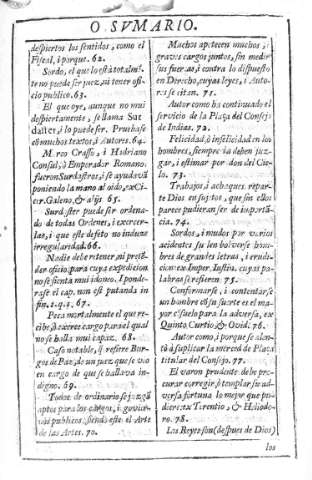 O SVMARIO.
despiertos los sentidos, como el
Fiscal, i porque. 62.
Sordo, el que lo està totalmẽ-
te no puede ser juez, ni tener ofi-
cio publico. 63.
El que oye, aunque no mui
despiertamente, se llama Sur
daster, i lo puede ser. Pruebase
cõ muchos textos, i Autores. 64.
M. rco Crasso, i Hadriano
Consul, ò Emperador Romano,
fueron Surdastros, i se ayudavã
poniendo la mano al oido, ex Ci-
cer. Galeno, & alijs 65.
Surdaster puede ser ordena-
do de todas Ordenes, i exercer-
las, i que este defeto no induce
irregularidad. 66.
Nadie debe retener, ni preten-
der oficio para cuya expedicion
no se sienta mui idoneo. I ponde-
rase el cap. non est putanda in
fin. 1. q. 1. 67.
Peca mortalmente el que re-
cibe, ò exerce cargo para el qual
no se halla mui capaz. 68.
Caso notable, q̃ refiere Bor-
gos de Paz, de un juez que se via
en cargo de que se hallava in-
digno. 69.
Todos de ordinario se juzgã
aptos para los cargos, i govier-
nos publicos, siendo este el Arte
de las Artes. 70.
Muchos apetecen muchos, i
graves cargos juntos, sin medir
sus fuerzas, i contra lo dispuesto
en Derecho, cuyas leyes, i Auto-
res se citan. 71.
Autor como ha continuado el
servicio de la Plaça del Consejo
de Indias. 72.
Felicidad, ò infelicidad en los
hombres, siempre la deben juz-
gar, i estimar por don del Cie-
lo. 73.
Trabajos, i achaques repar-
te Dios en sujetos, que sin ellos
parece pudieran ser de importã-
cia. 74.
Sordos, i mudos por varios
accidentes suelen bolverse hom-
bres de grandes letras, i erudi-
cion: ex Imper. Justin. cuyas pa-
labras se refieren 75.
Conformarse, i contentarse
un hombre cõ su suerte es el ma-
yor cõsuelo para la adversa, ex
Quinto Curtio, & Ovid. 76.
Autor como, i porque se alen-
tò à suplicar la merced de Plaça
titular del Consejo. 77.
El varon prudente debe pro-
curar corregir, ò templar su ad-
versa fortuna lo mejor que pu-
diere: ex Terentio, & Heliodo-
ro. 78.
Los Reyes son (despues de Dios)
los